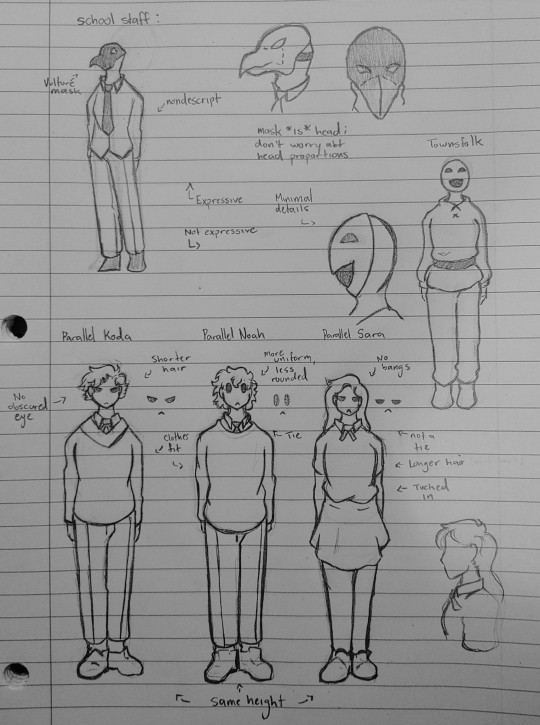 school staff:
Vulture
mask
nondescript
Mask *is* head;
don't worry abt
head proportions
Townsfolk
Expressive
Minimal
details
Not expressive
Parallel Koda
Parallel Noah
Parallel Sara
Shorter
hair
More
uniform,
less
rounded
No
bangs
No
obscured
eye
clothes
fit
Tie
not a
tie
Longer hair
Tucked
in
same height